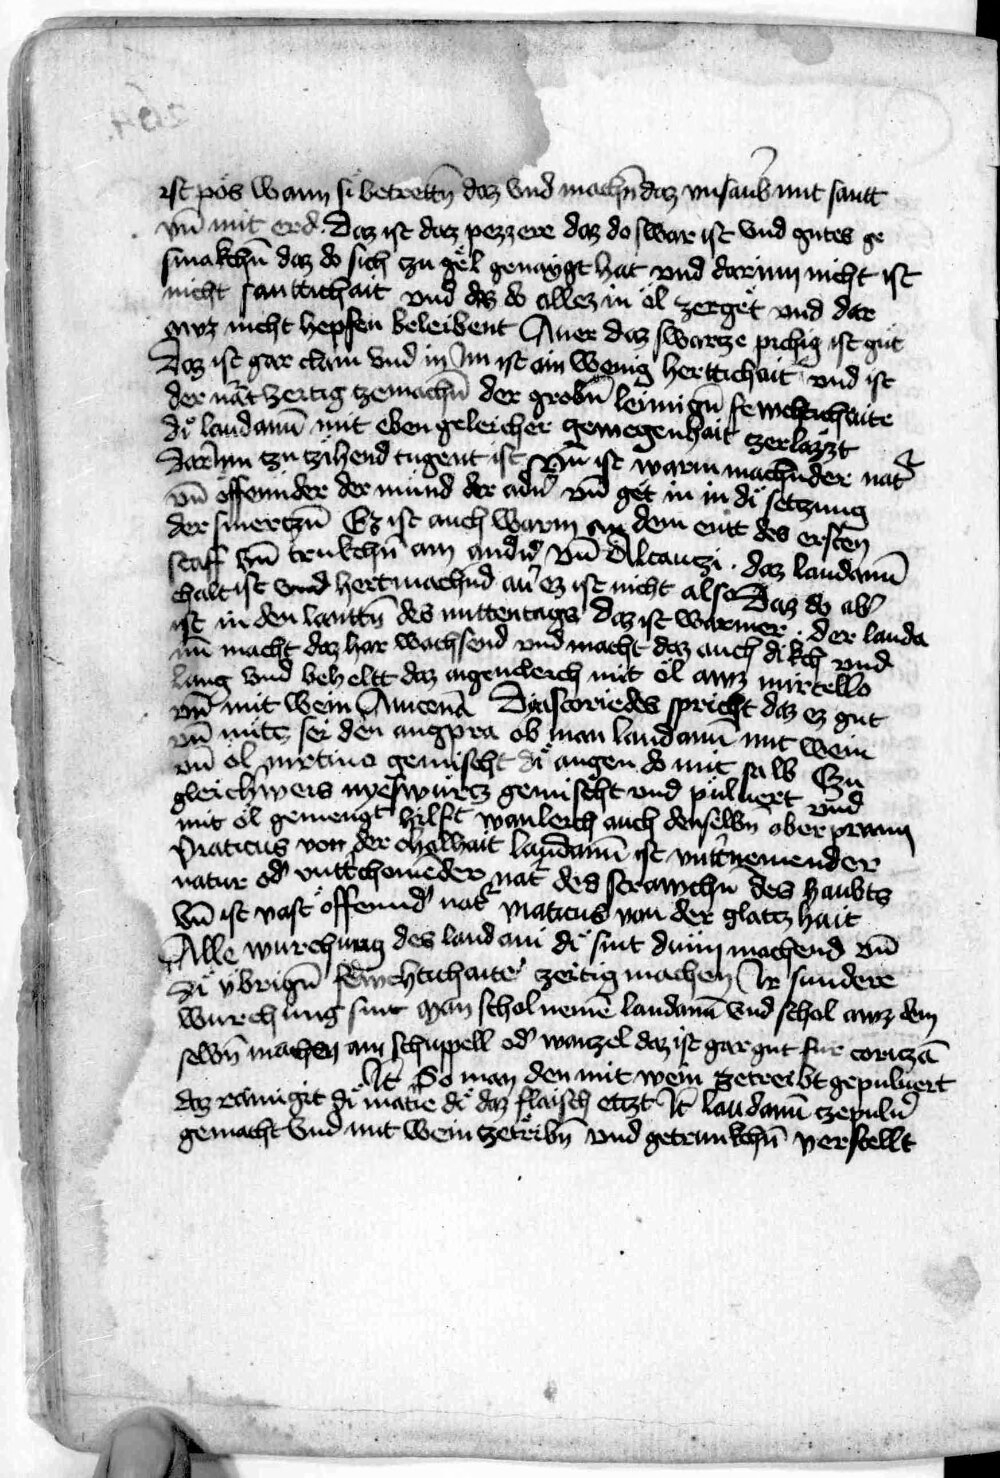 ist pös wann si betrettn̄ daz vnd machn̄ daz vnsaub̄ mit santt
vn̄ mit erd. Daz ist daz pezzere daz do swar ist vnd gutes ge
smakchn̄ daz do sich zu gel genaygt hat vnd darinn nicht ist
nicht santtichait vnd daz do allez in öl zerget vnd dar
awz nicht hepfen beleibent Auer daz swartze pichig ist gut
Daz ist gar clain vnd in im ist ain wenig herttichait vnd ist
der nat̄ zeitig zemachn̄ der grobn̄ leimign̄ fewchtichaite
di laudanū mit eben geleicher gewegenhait zerlazzt
Darinn zu zihend tugent ist vn̄ ist warm machn̄der nat̄
vn̄ offennder der münd der adn̄ vn̄ get in in di setzung
der smertzn̄ Ez ist auch warm an dem entt des ersten
staff vn̄ trukchn̄ am andn̄ vn̄ Alcanzi. daz laudanū
chalt ist vnd hertmachnd au̇ ez ist nicht also Daz do ab̄
ist in den lanttn̄ des mittentags daz ist warmer. der lauda
nū macht daz har wachsend vnd macht daz auch dikch vnd
lang vnd beheltt daz aigenclerch mit öl awz mirtello
vn̄ mit wein Auicenā Dyascorides spricht daz ez gut
vn̄ nütz sei den augpra ob man laudanū mit wein
vn̄ öl mirtino gemischt di augen do mit salb Zu
gleichweis nyeswurcz gemischt vnd puluert vnd
mit öl gemengt hilft wanlerch auch denselbn̄ ober prawn
Viaticus von der chalhait laudanū ist vntt̄nemender
natur od̄ vnttchomēder nat̄ des strawchn̄ des haubts
vn̄ ist vast offennd̄ nat̄ viaticus von der glatz hait
Alle wurchung des laudani di sint dünn machend vn̄
di vbrign̄ fewchtichaite zeitig machen Ir sundere
wurchung sint Man schol nemē laudanū vnd schol awz dem
selbn̄ machen ain schuppell od̄ waizel daz ist gar gut fur coriczā
It̄ So man den mit wein zetreibt gepuluert
daz rainigit di matīe di daz flaisch etzt It̄ laudanū zepulu̇
gemacht vnd mit wein zetribn̄ vnd getrunkchn̄ verstellt